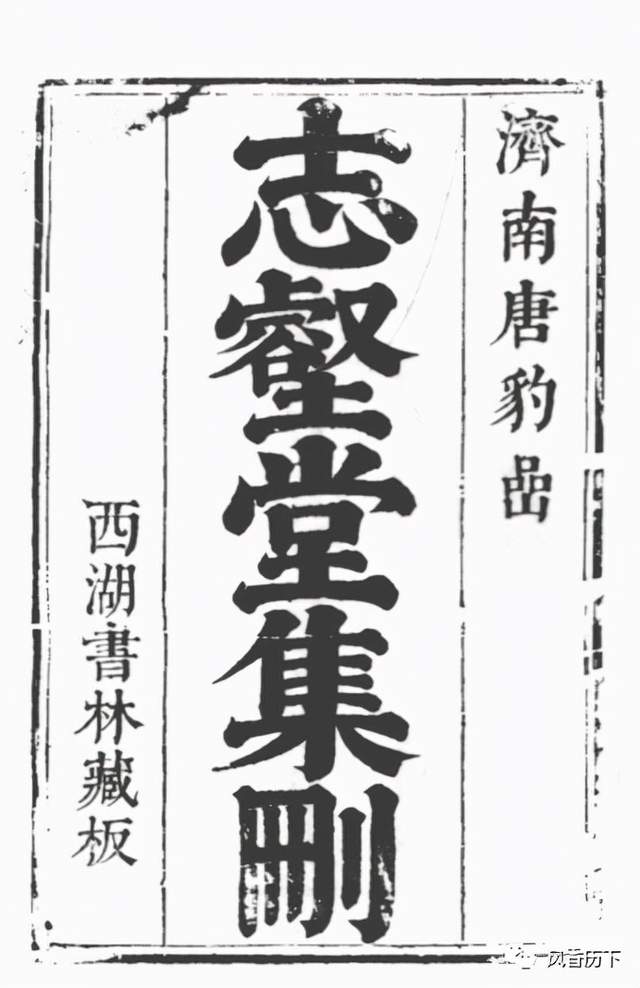 濟南唐豹嵒
志壑堂集刪
西湖書林藏板